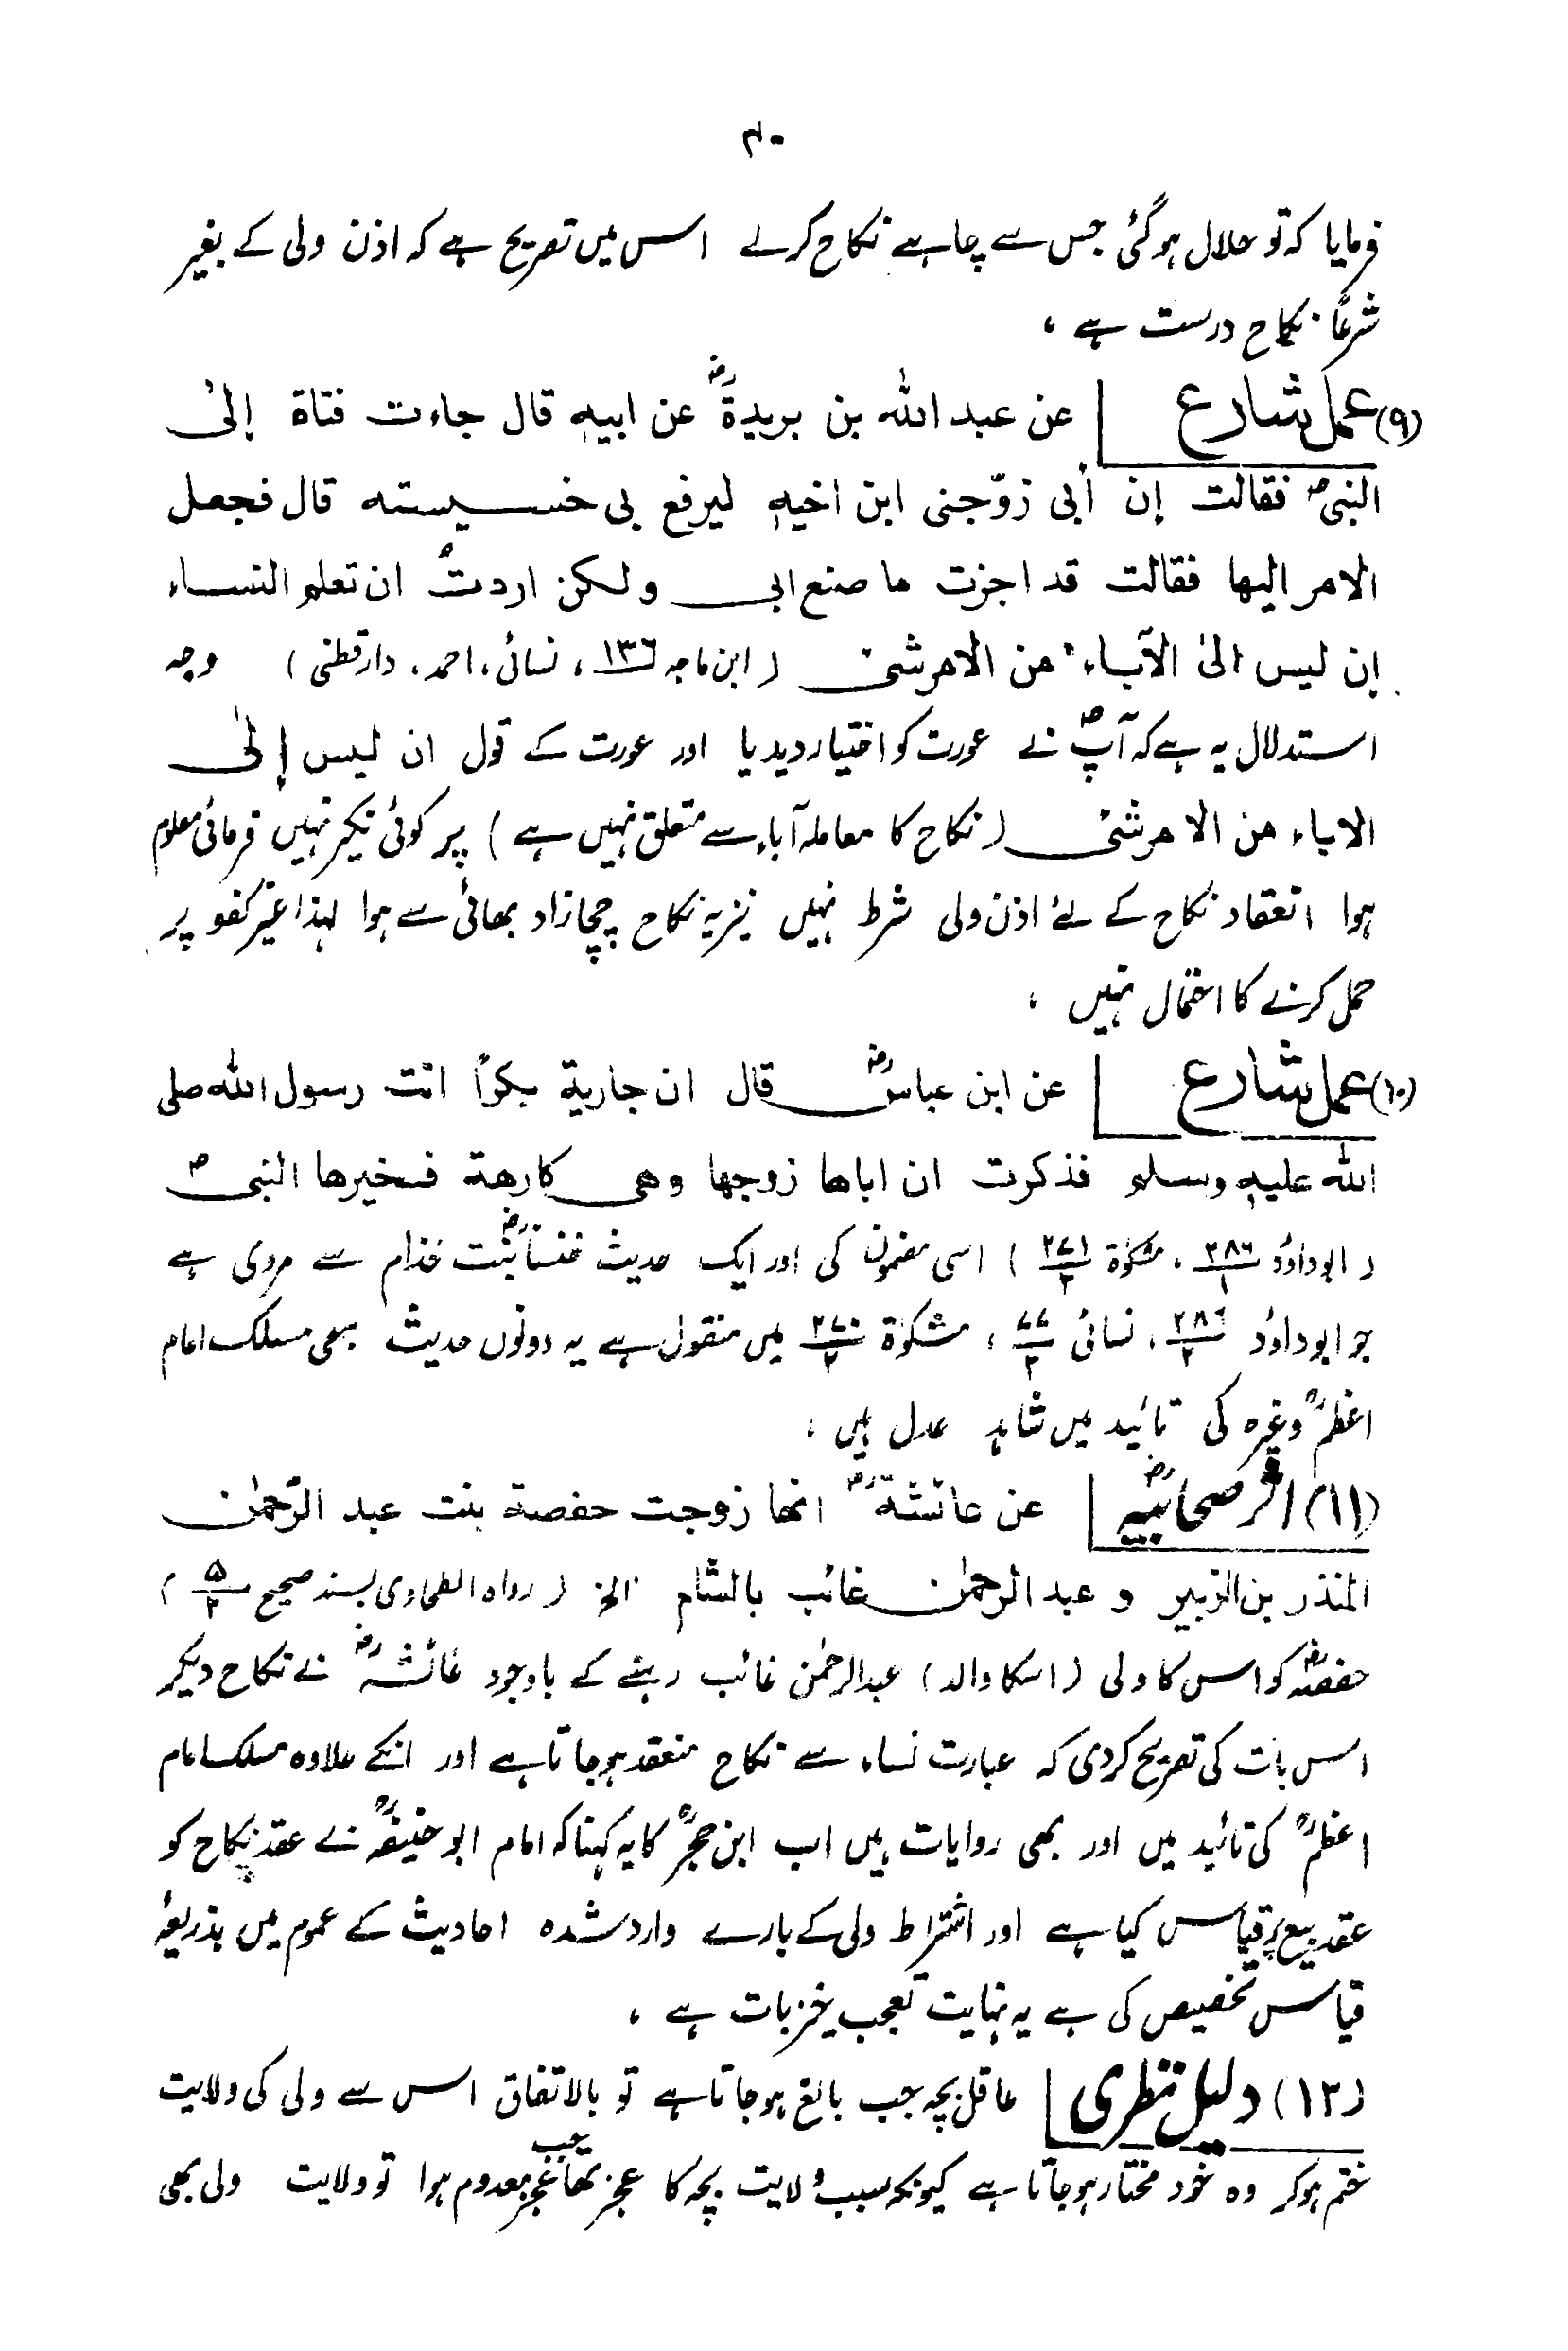 ۴۰
فرمایا کہ تو حلال ہوگئی جس سے چاہے نکاح کرلے اس میں تصریح ہے کہ اذن ولی کے بغیر
شرعًا نکاح درست ہے ،
(۹) عمل شارع عن عبد اللہ بن بریدۃؓ عن ابیہ قال جاءت فتاۃ إلیٰ
النبیؐ فقالت إن أبی زوّجنی ابن اخیہٖ لیرفع بی خسیستہ قال فجعل
الامر الیھا فقالت قد اجزت ما صنع ابی ولکن اردتُ ان تعلم النساء
إن لیس الیٰ الآباء من الامر شیٔ ( ابن ماجہ ۱۳۶ ، نسائی ، احمد ، دارقطنی ) وجہ
استدلال یہ ہے کہ آپؐ نے عورت کو اختیار دیدیا اور عورت کے قول ان لیس إلیٰ
الاباء من الامر شیٔ ( نکاح کا معاملہ آباء سے متعلق نہیں ہے ) پر کوئی نکیر نہیں فرمائی معلوم
ہوا انعقاد نکاح کے لئے اذن ولی شرط نہیں نیز یہ نکاح چچازاد بھائی سے ہوا لہذا غیر کفو پر
حمل کرنے کا احتمال نہیں ،
(۱۰) عمل شارع عن ابن عباسؓ قال ان جاریۃ بکرًا اتت رسول اللہ صلی
اللہ علیہ وسلم فذکرت ان اباھا زوجھا وھی کارھۃ فخیرھا النبیؐ
( ابوداؤد ۲۸۶/۱ ، مشکوٰۃ ۲۷۱/۲ ) اسی مضمون کی اور ایک حدیث خنساؓ بنت خذام سے مروی ہے
جو ابوداؤد ۲۸۶/۲ ، نسائی ۷۷/۲ ، مشکوٰۃ ۲۷۰/۲ میں منقول ہے یہ دونوں حدیث بھی مسلک امام
اعظمؒ وغیرہ کی تائید میں شاہد عدل ہیں ،
(۱۱) اثر صحابیہؓ عن عائشۃؓ انھا زوجت حفصۃ بنت عبد الرّحمٰن
المنذر بن الزبیر و عبد الرحمٰن غائب بالشام الخ ( رواہ الطحاوی بسند صحیح ۵/۲ )
حفصہؓ کو اس کا ولی ( اسکا والد ) عبدالرحمٰن غائب رہنے کے باوجود عائشہؓ نے نکاح دیکر
اس بات کی تصریح کردی کہ عبارت نساء سے نکاح منعقد ہوجاتا ہے اور انکے علاوہ مسلک امام
اعظمؒ کی تائید میں اور بھی روایات ہیں اب ابن حجرؒ کا یہ کہنا کہ امام ابو حنیفہؒ نے عقد نکاح کو
عقد بیع پر قیاس کیا ہے اور اشتراط ولی کے بارے وارد شدہ احادیث کے عموم میں بذریعۂ
قیاس تخصیص کی ہے یہ نہایت تعجب خیز بات ہے ،
(۱۲) دلیل نظری عاقل بچہ جب بالغ ہوجاتا ہے تو بالاتفاق اس سے ولی کی ولایت
ختم ہوکر وہ خود مختار ہوجاتا ہے کیونکہ سبب ولایت بچہ کا عجز تھا جب عجز معدوم ہوا تو ولایت ولی بھی